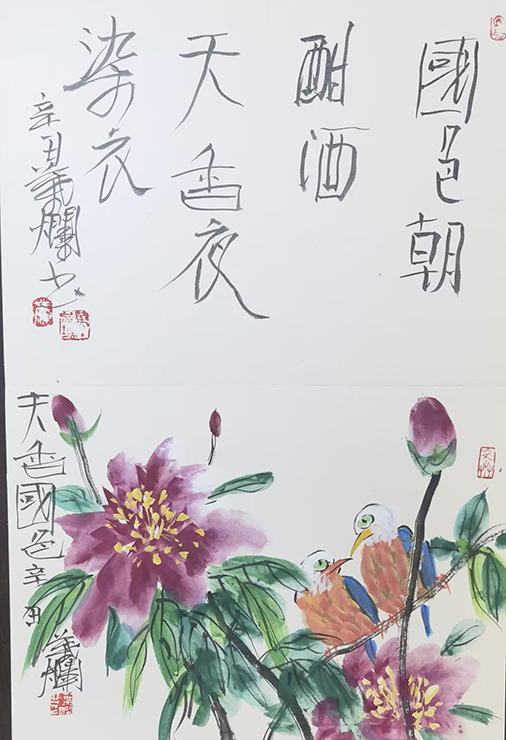 國色朝
酣酒
天香夜
染衣
辛丑義爛书
天香國色辛丑
義爛